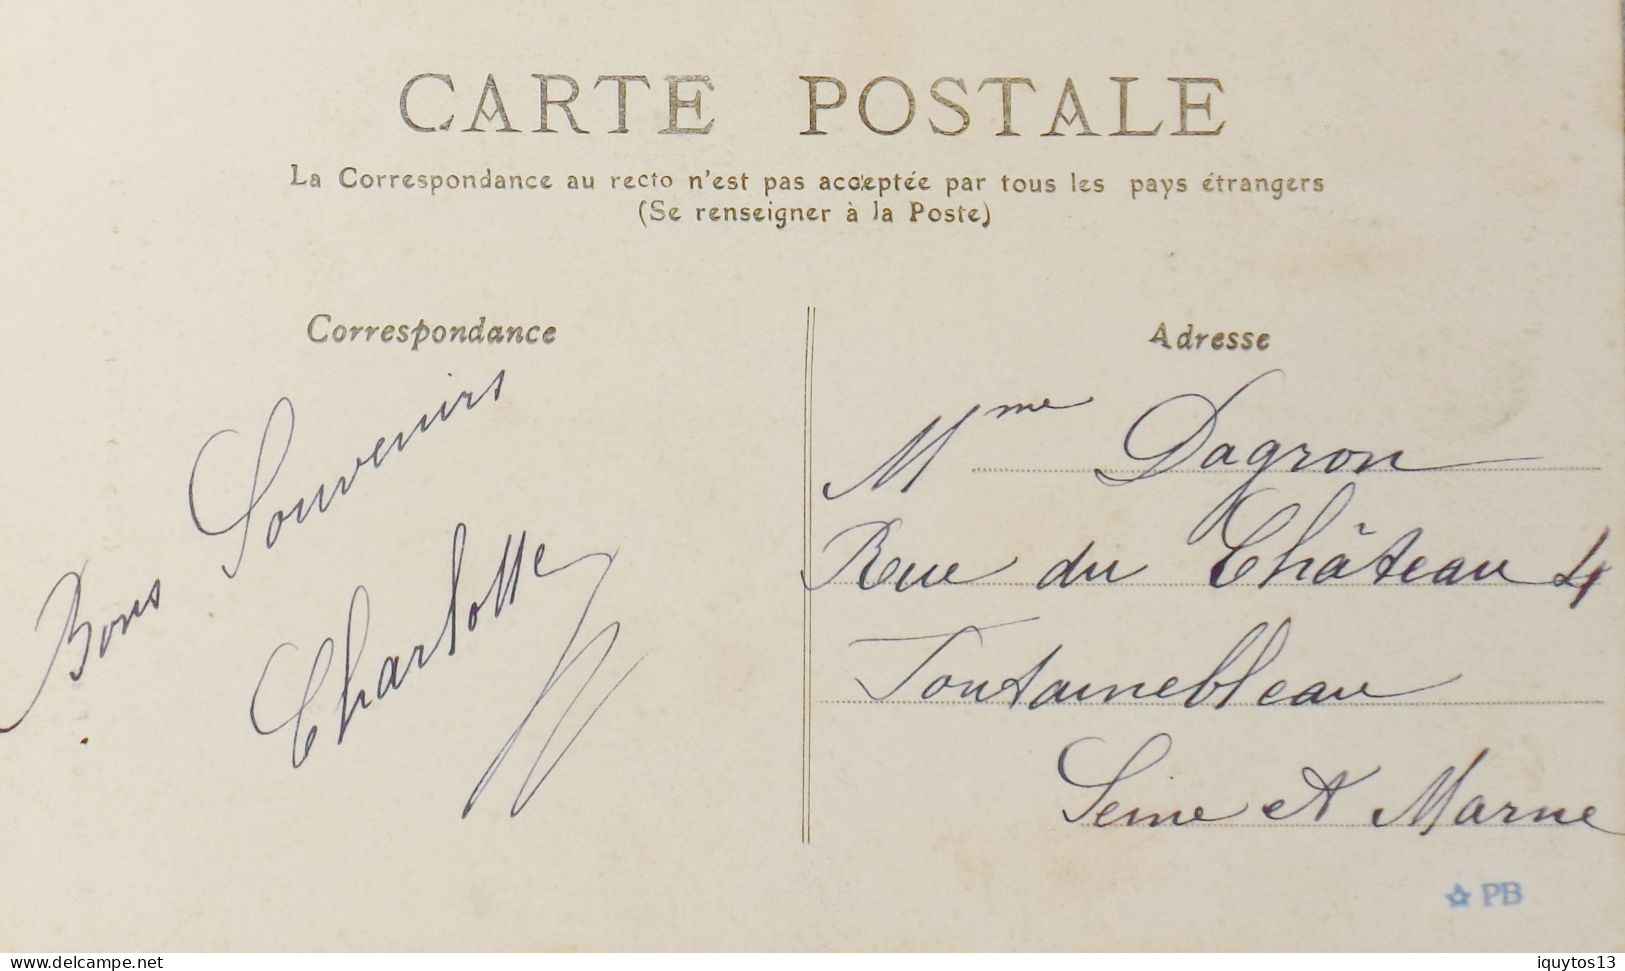 CARTE POSTALE
La Correspondance au recto n'est pas acceptée par tous les pays étrangers
(Se renseigner à la Poste)
Correspondance
Bons Souvenirs
Charlotte
Adresse
Mme Dagron
Rue du Château 4
Fontainebleau
Seine et Marne
PB
www.delcampe.net
iquytos13